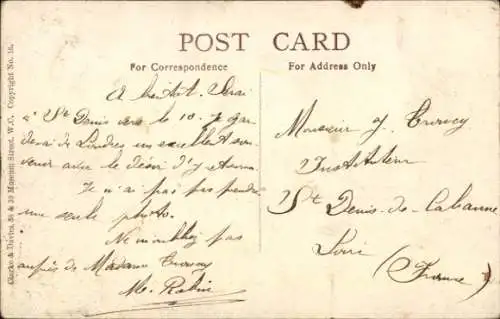 POST CARD
For Correspondence
For Address Only
A bientôt. Serai
à St Denis vers le 10. J gar
derai de Londres un excellent sou-
venir avec le désir d'y retourner.
Je n'ai pas pu prendre
une seule photo.
Ne m'oubliez pas
auprès de Madame
M.
Monsieur J.
Instituteur
St Denis-de-Cabanne
Loire
(France)
Clarke & Davies, 38 & 39 Museum Street, W.C. Copyright No. 15.